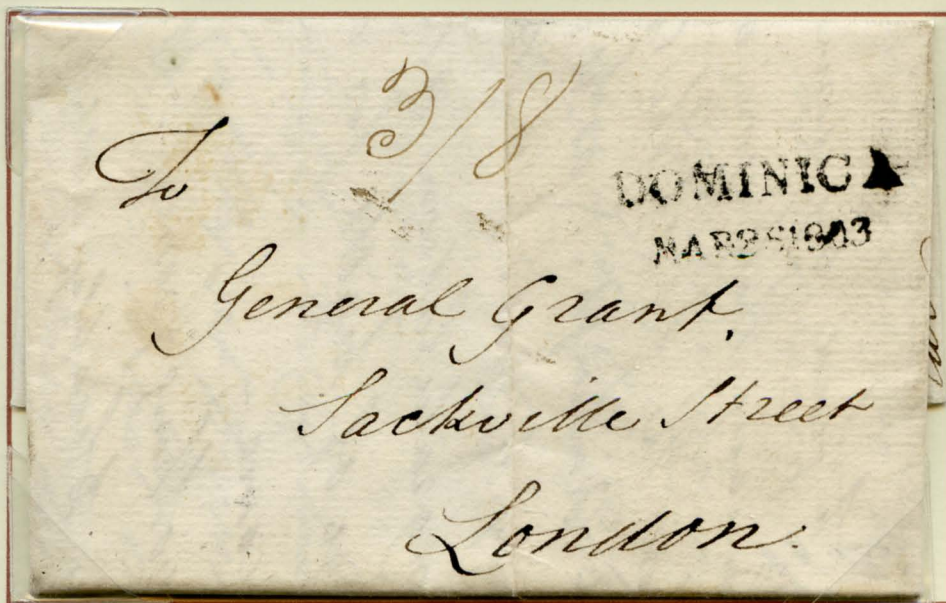 3/8
To
DOMINICA
General Grant,
Sackville Street
London.